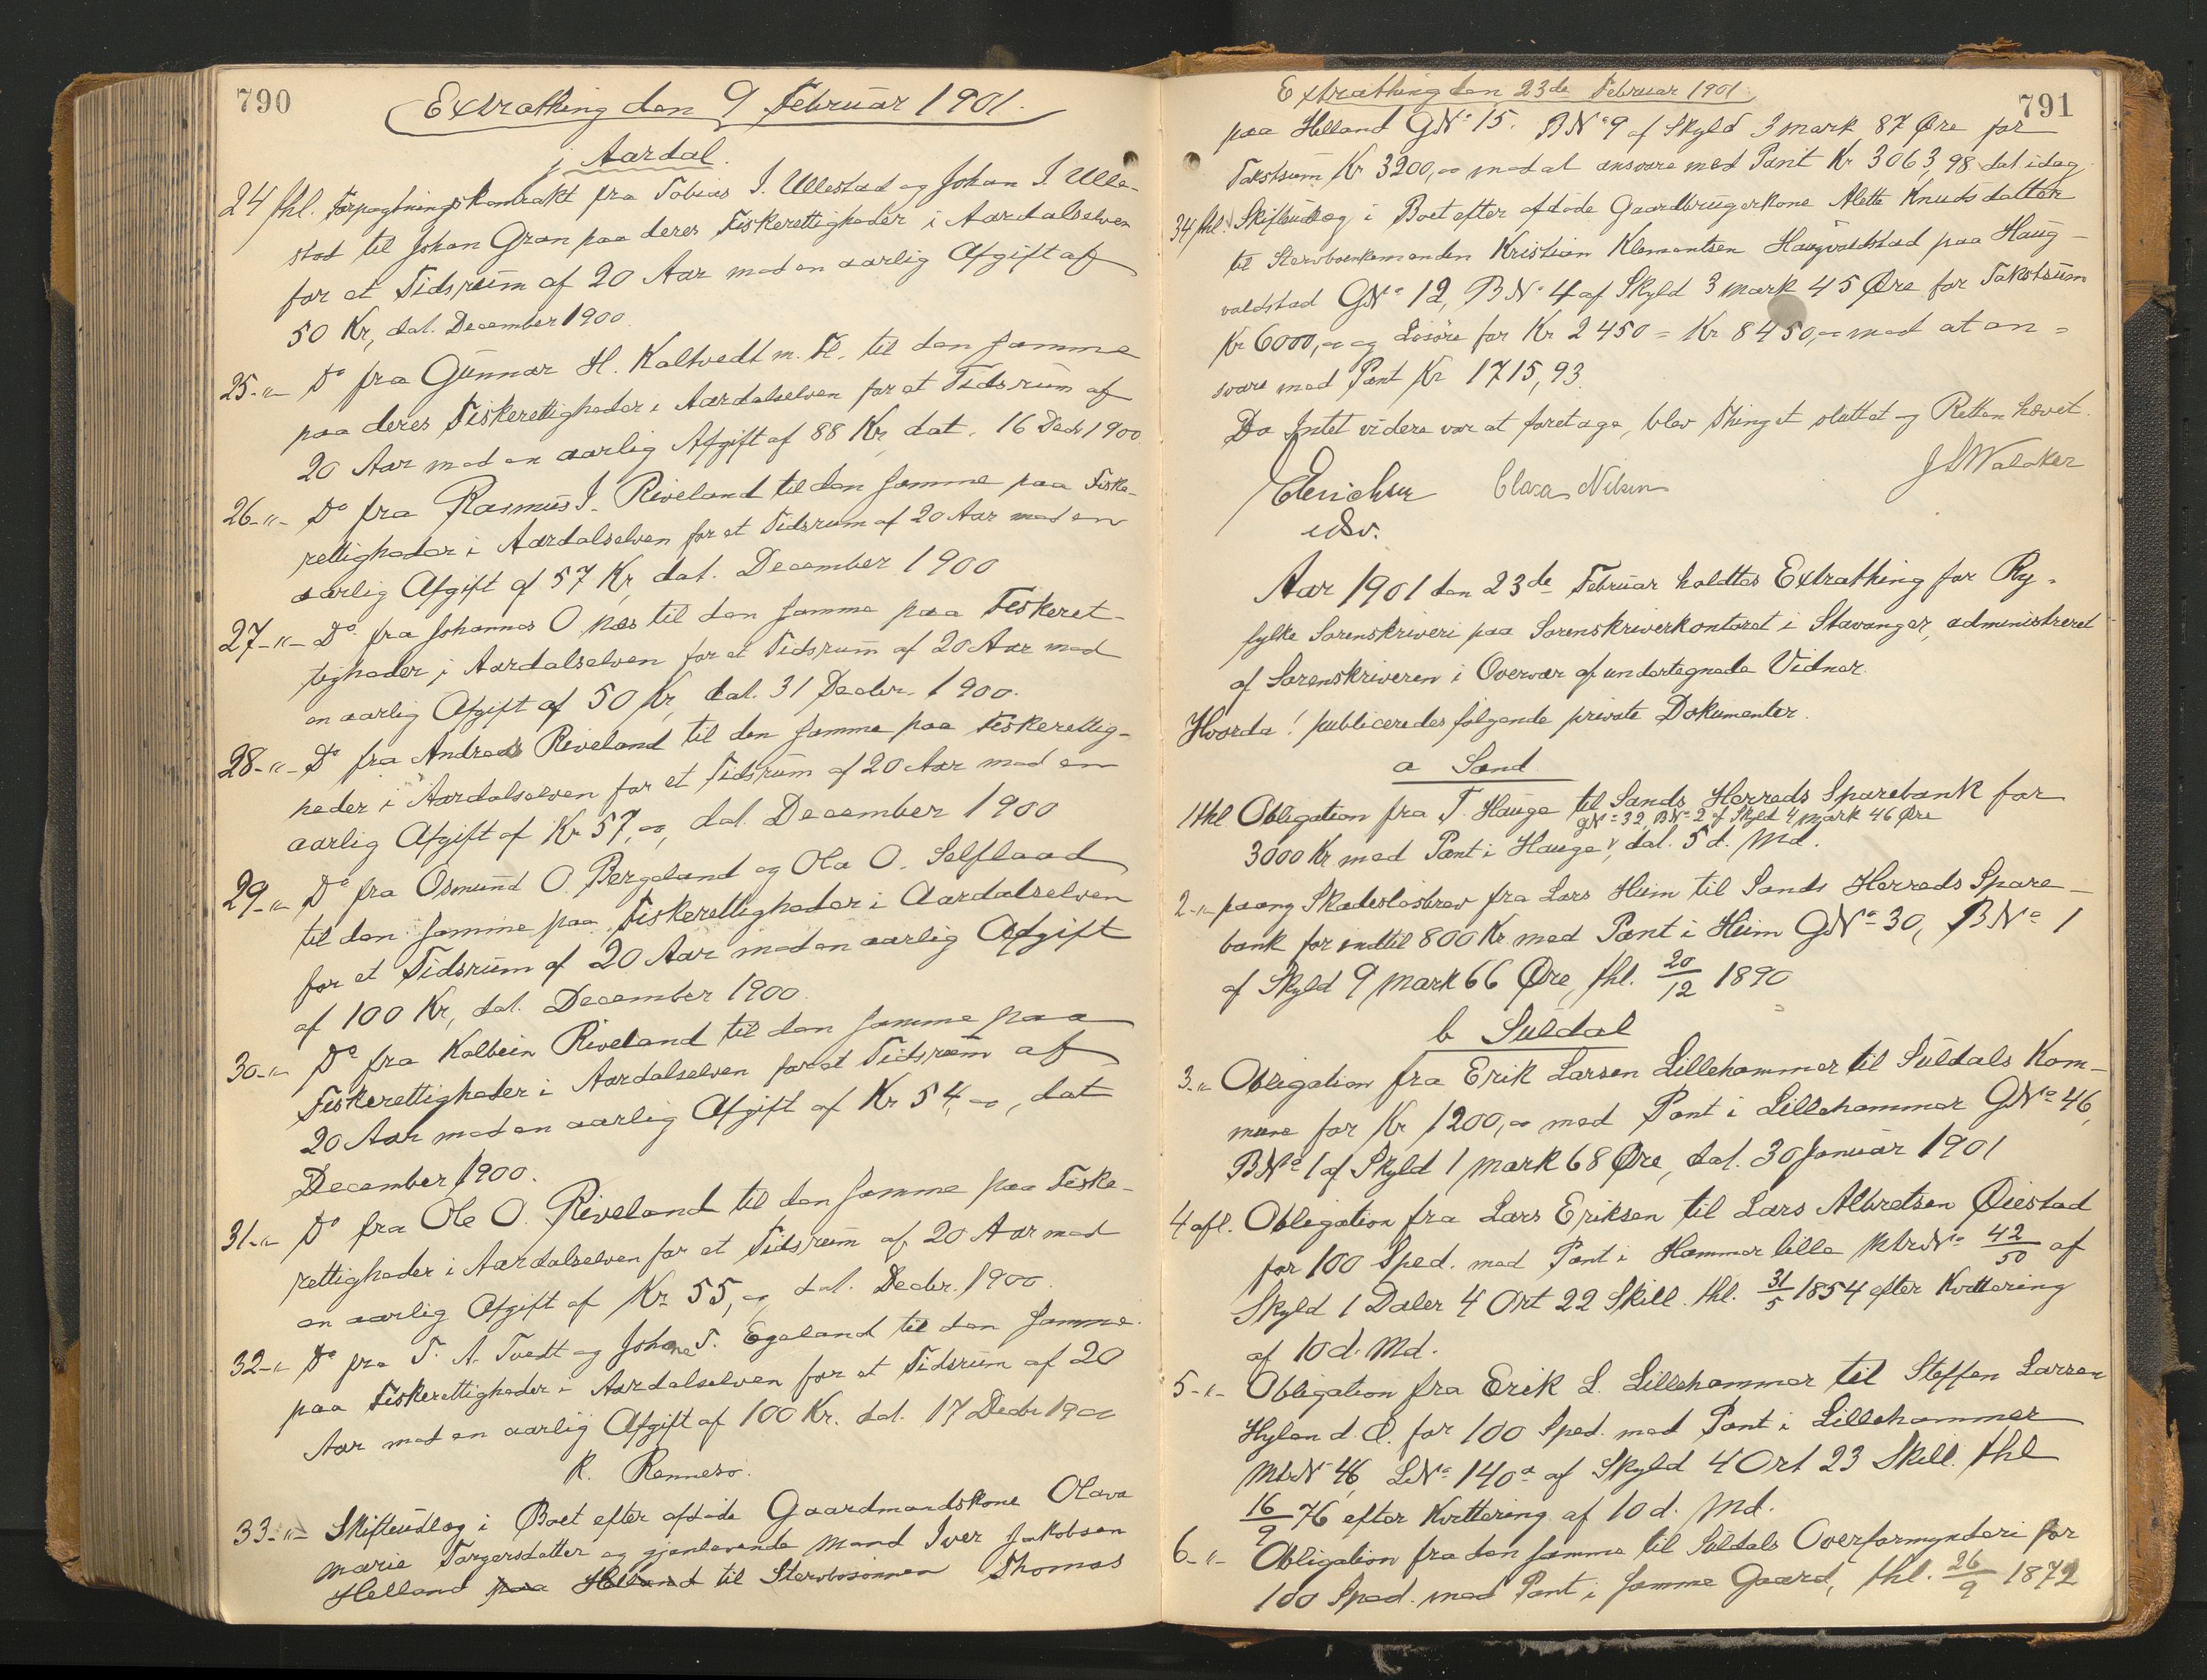 790
Extrathing den 9 Februar 1901.
j Aardal.
24 thl. Forpagtningskontrakt fra Tobias I. Ullestad og Johan I. Ulle-
stad til Johan Gran paa deres Fiskerettigheder i Aardalselven
for et Tidsrum af 20 Aar med en aarlig Afgift af
50 Kr, dat. December 1900.
25-"- Do fra Gunnar H. Kaltvedt m. Fl. til den samme
paa deres Fiskerettigheder i Aardalselven for et Tidsrum af
20 Aar med en aarlig Afgift af 88 Kr, dat. 16 Decbr 1900
26-"- Do fra Rasmus I. Riveland til den samme paa Fiske-
rettigheder i Aardalselven for et Tidsrum af 20 Aar med en
aarlig Afgift af 57 Kr, dat. December 1900
27-"- Do fra Johannes O Næs til den samme paa Fiskeret-
tigheder i Aardalselven for et Tidsrum af 20 Aar med
en aarlig Afgift af 50 Kr, dat. 31 Decbr. 1900.
28-"- Do fra Andreas Riveland til den samme paa Fiskerettig-
heder i Aardalselven for et Tidsrum af 20 Aar med en
aarlig Afgift af Kr 57,00, dat. December 1900
29-"- Do fra Osmund O. Bergeland og Ola O. Selflaad
til den samme paa Fiskerettigheder i Aardalselven
for et Tidsrum af 20 Aar med en aarlig Afgift
af 100 Kr, dat. December 1900.
30-"- Do fra Kolbein Riveland til den samme paa
Fiskerettigheder i Aardalselven for et Tidsrum af
20 Aar med en aarlig Afgift af Kr 54,00, dat
December 1900.
31-"- Do fra Ole O. Riveland til den samme paa Fiske-
rettigheder i Aardalselven for et Tidsrum af 20 Aar med
en aarlig Afgift af Kr 55,00, dat. Decbr. 1900.
32-"- Do fra T. A. Tvedt og Johane T. Egeland til den samme
paa Fiskerettigheder i Aardalselven for et Tidsrum af 20
Aar med en aarlig Afgift af 100 Kr. dat. 17 Decbr 1900
k. Rennesø.
33-"- Skifteudlæg i Boet efter afdøde Gaardmandskone Olava
Marie Torgersdatter og gjenlevende Mand Iver Jakobsen
Helland paa Helland til Stervbosønnen Thomas
791
Extrathing den 23de Februar 1901
paa Helland GNo 15. BNo 9 af Skyld 3 Mark 87 Øre for
Takstsum Kr 3200,00 mod at ansvare med Pant Kr 3063,98 dat idag.
34 thl. Skifteudlæg i Boet efter afdøde Gaardbrugerkone Alette Knudsdatter
til Stervboenkemanden Kristian Klementsen Haugvaldstad paa Haug-
valdstad GNo 12, BNo 4 af Skyld 3 Mark 45 Øre for Takstsum
Kr 6000,00 og Løsøre for Kr 2450 = Kr 8450,00 mod at an=
svare med Pant Kr 1715,93.
Da Intet videre var at foretage, blev Thinget sluttet og Retten hævet.
Clara Nilsen
Aar 1901 den 23de Februar holdtes Extrathing for Ry-
fylke Sorenskriveri paa Sorenskriverkontoret i Stavanger, administreret
af Sorenskriveren i Overvær af undertegnede Vidner.
Hvorda! publiceredes følgende private Dokumenter.
a Sand
1 thl Obligation fra T. Hauge til Sands Herreds Sparebank for
GNo 32, BNo 2 af Skyld 4 Mark 46 Øre
3000 Kr med Pant i Hauge, dat. 5 d. Md.
2-"- paang Skadesløsbrev fra Lars Heim til Sands Herreds Spare-
bank for indtil 800 Kr med Pant i Heim GNo 30, BNo 1
af Skyld 9 Mark 66 Øre, thl. 20/12 1890
b Suldal
3-"- Obligation fra Erik Larsen Lillehammer til Suldals Kom-
mune for Kr 1200,00 med Pant i Lillehammer GNo 46,
BNo 1 af Skyld 1 Mark 68 Øre, dat. 30 Januar 1901
4 afl. Obligation fra Lars Eriksen til Lars Albretsen Øiestad
for 100 Sped. med Pant i Hammer lille MtrNo 42/50 af
Skyld 1 Daler 4 Ort 22 Skill. thl. 31/5 1854 efter Kvittering
af 10 d. Md.
5-"- Obligation fra Erik L. Lillehammer til Steffen Larsen
Hylen d. Æ. for 100 Sped. med Pant i Lillehammer
MtrNo 46, LNo 140a af Skyld 4 Ort 23 Skill. thl
16/9 76 efter Kvittering af 10 d. Md.
6-"- Obligation fra den samme til Suldals Overformynderi for
100 Sped. med Pant i samme Gaard, thl. 26/9 1872